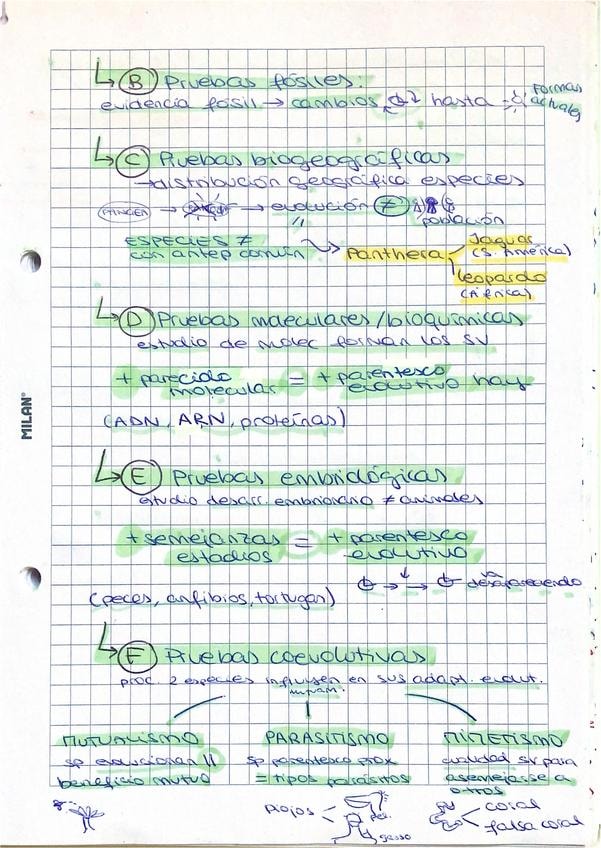 B Pruebas fósiles:
evidencia fósil → cambios hasta formas actuales
C Pruebas biogeográficas
→ distribución geográfica especies
PANGEA → → evolución ≠
población
ESPECIES ≠
con antep común → Panthera
Jaguar
(S. América)
Leopardo
(África)
D Pruebas moleculares/bioquímicas
estudio de molec forman los SV
+ parecido molecular = + parentesco evolutivo hay
(ADN, ARN, proteínas)
MILAN®
E Pruebas embriológicas
estudio desarr. embrionario ≠ animales
+ semejanzas estadios = + parentesco evolutivo
va desapareciendo
(peces, anfibios, tortugas)
F Pruebas coevolutivas
proc. 2 especies influyen en sus adapt. evolut.
mutuam.
MUTUALISMO
sp evolucionan //
beneficio mutuo
PARASITISMO
sp parentesco prox
= tipos parásitos
MIMETISMO
cualidad SV para
asemejarse a
otros
piojos
coral
falsa coral